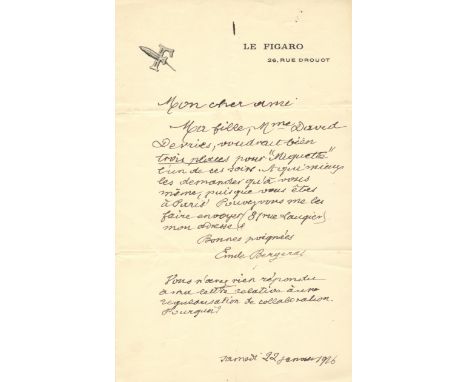 LE FIGARO
26, RUE DROUOT
Mon cher ami
Ma fille, Mme David
Devriès, voudrait bien
trois places pour "Riquette"
l'un de ces soirs. A qui mieux
les demander qu'à vous
même, puisque vous êtes
à Paris? Pouvez vous me les
faire envoyer (8 rue Laugier)
mon adresse?
Bonnes poignées
Emile Bergerat
Vous n'avez rien répondu
à ma lettre relative à une
de collaboration.
Pourquoi?
Samedi 22 janvier